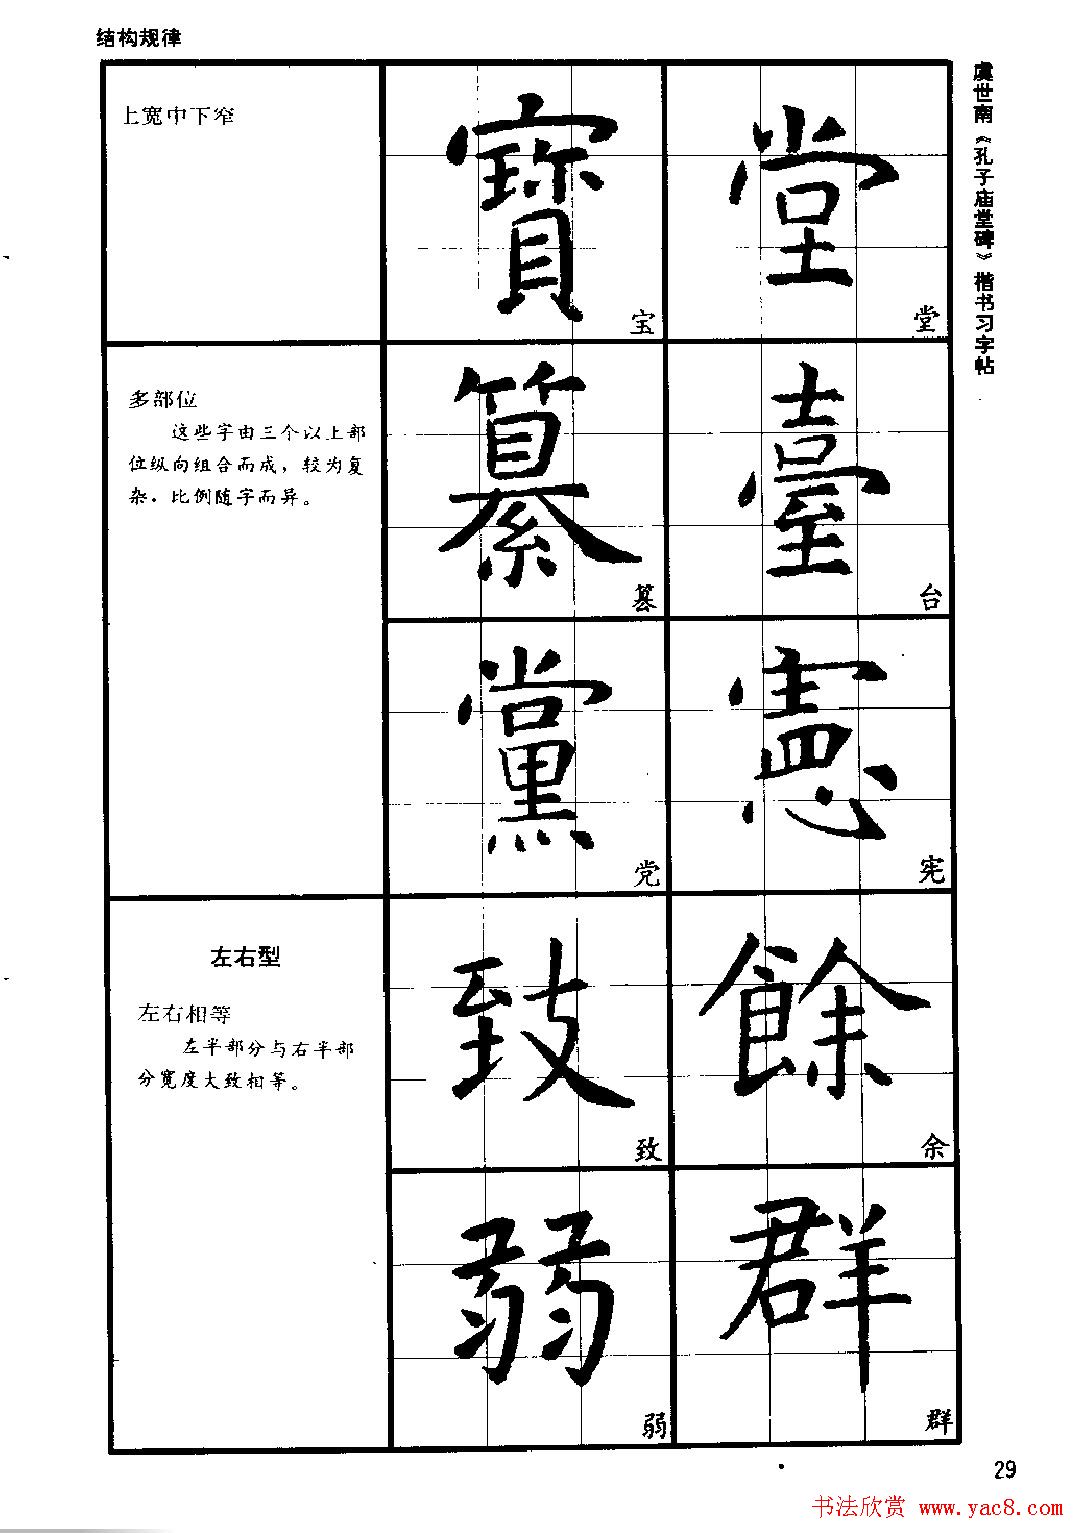 结构规律
虞世南《孔子庙堂碑》楷书习字帖
上宽中下窄
寶
宝
堂
堂
多部位
这些字由三个以上部
位纵向组合而成，较为复
杂，比例随字而异。
纂
篡
臺
台
黨
党
憲
宪
左右型
左右相等
左半部分与右半部
分宽度大致相等。
致
致
餘
余
弱
弱
群
群
29
书法欣赏 www.yac8.com